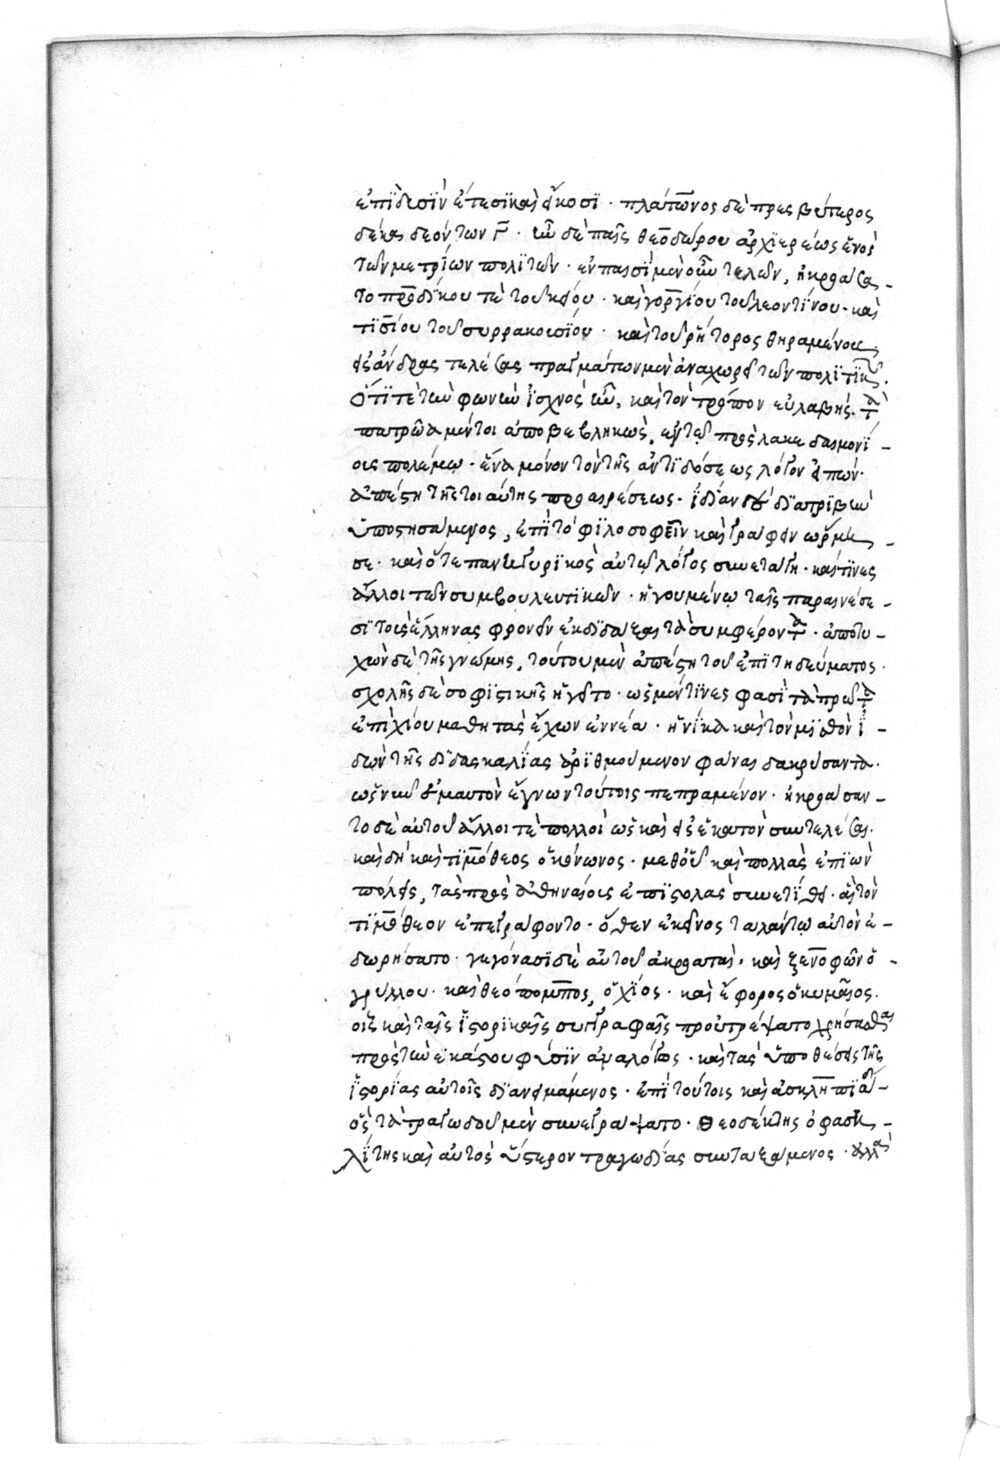 ἐπίδεσϊν ἔτεσϊ καὶ εἴκοσϊ · πλάτωνος δὲ πρεσβύτερος
δέκα δεόντων γ̅ · ὢν δὲ παῖς θεοδώρου ἀρχιερέως ἑνὸς
τῶν μετρίων πολιτῶν · ἐν παισὶ μὲν οὖν τελῶν, ἠκροάσα-
το προδίκου τὲ τοῦ κείου · καὶ γοργίου τοῦ λεοντίνου · καὶ
τισίου τοῦ συρρακουσίου · καὶ τοῦ ῥήτορος θηραμένους
εἰς ἄνδρας τελέσας πραγμάτων μὲν ἀναχωρεῖ τῶν πολιτικῶν ·
ὅτι τὲ τὴν φωνὴν ἰσχνὸς ἦν, καὶ τὸν τρόπον εὐλαβής · τὰ
πατρῶα μέντοι ἀποβεβληκὼς, ἐν τῷ πρὸς λακεδαιμονί-
οις πολέμω · ἕνα μόνον τὸν τῆς ἀντιδόσεως λόγον εἰπών ·
ἀπέστη τῆς τοιαύτης προαιρέσεως · ἰδίαν δὲ διατριβὴν
ὑποστησάμενος, ἐπὶ τὸ φιλοσοφεῖν καὶ γράφειν ὥρμη-
σε · καὶ ὅτε πανηγυρικὸς αὐτῷ λόγος συνετάγη · καί τινες
ἄλλοι τῶν συμβουλευτικῶν · ἡγουμένω ταῖς παραινέσε-
σι τοὺς ἕλληνας φρονεῖν ἐκδιδάξαι τὰ συμφέροντα · ἀποτυ-
χὼν δὲ τῆς γνώμης, τούτου μὲν ἀπέστη τοῦ ἐπιτηδεύματος ·
σχολῆς δὲ σοφιστικῆς ἡγεῖτο · ὡς μέν τινες φασὶ τὰ πρῶτα
ἐπὶ χίου μαθητὰς ἔχων ἐννέα · ἡνίκα καὶ τὸν μισθὸν ἰ-
δὼν τῆς διδασκαλίας ἀριθμούμενον φάναι δακρύσαντα ·
ὡς νῦν ἐμαυτὸν ἔγνων τούτοις πεπραμένον · ἠκροάσαν-
το δὲ αὐτοῦ ἄλλοι τὲ πολλοὶ ὡς καὶ εἰς ἑκατὸν συντελέσαι ·
καὶ δὴ καὶ τιμόθεος ὁ κόνωνος · μεθοῦ καὶ πολλὰς ἐπιὼν
πόλεις, τὰς πρὸς ἀθηναίους ἐπιστολὰς συνετίθει · ἃς τὸν
τιμόθεον ἐπεγράφοντο · ὅθεν ἐκεῖνος ταλάντω αὐτὸν ἐ-
δωρήσατο · γεγόνασι δὲ αὐτοῦ ἀκροαταὶ · καὶ ξενοφῶν ὁ
γρύλλου · καὶ θεόπομπος, ὁ χῖος · καὶ ἔφορος ὁ κυμαῖος ·
οἷς καὶ ταῖς ἱστορικαῖς συγγραφαῖς προὐτρέψατο χρήσασθαι
πρὸς τὴν ἑκάστου φύσιν ἀναλόγως · καὶ τὰς ὑποθέσεις τῆς
ἱστορίας αὐτοῖς διανειμάμενος · ἐπὶ τούτοις καὶ ἀσκληπιάδη-
ος τὰ τραγωδούμεν συνεγράψατο · θεοδέκτης ὁ φαση-
λίτης καὶ αὐτὸς ὕστερον τραγωδίας συνταξάμενος · ἀλλὰ